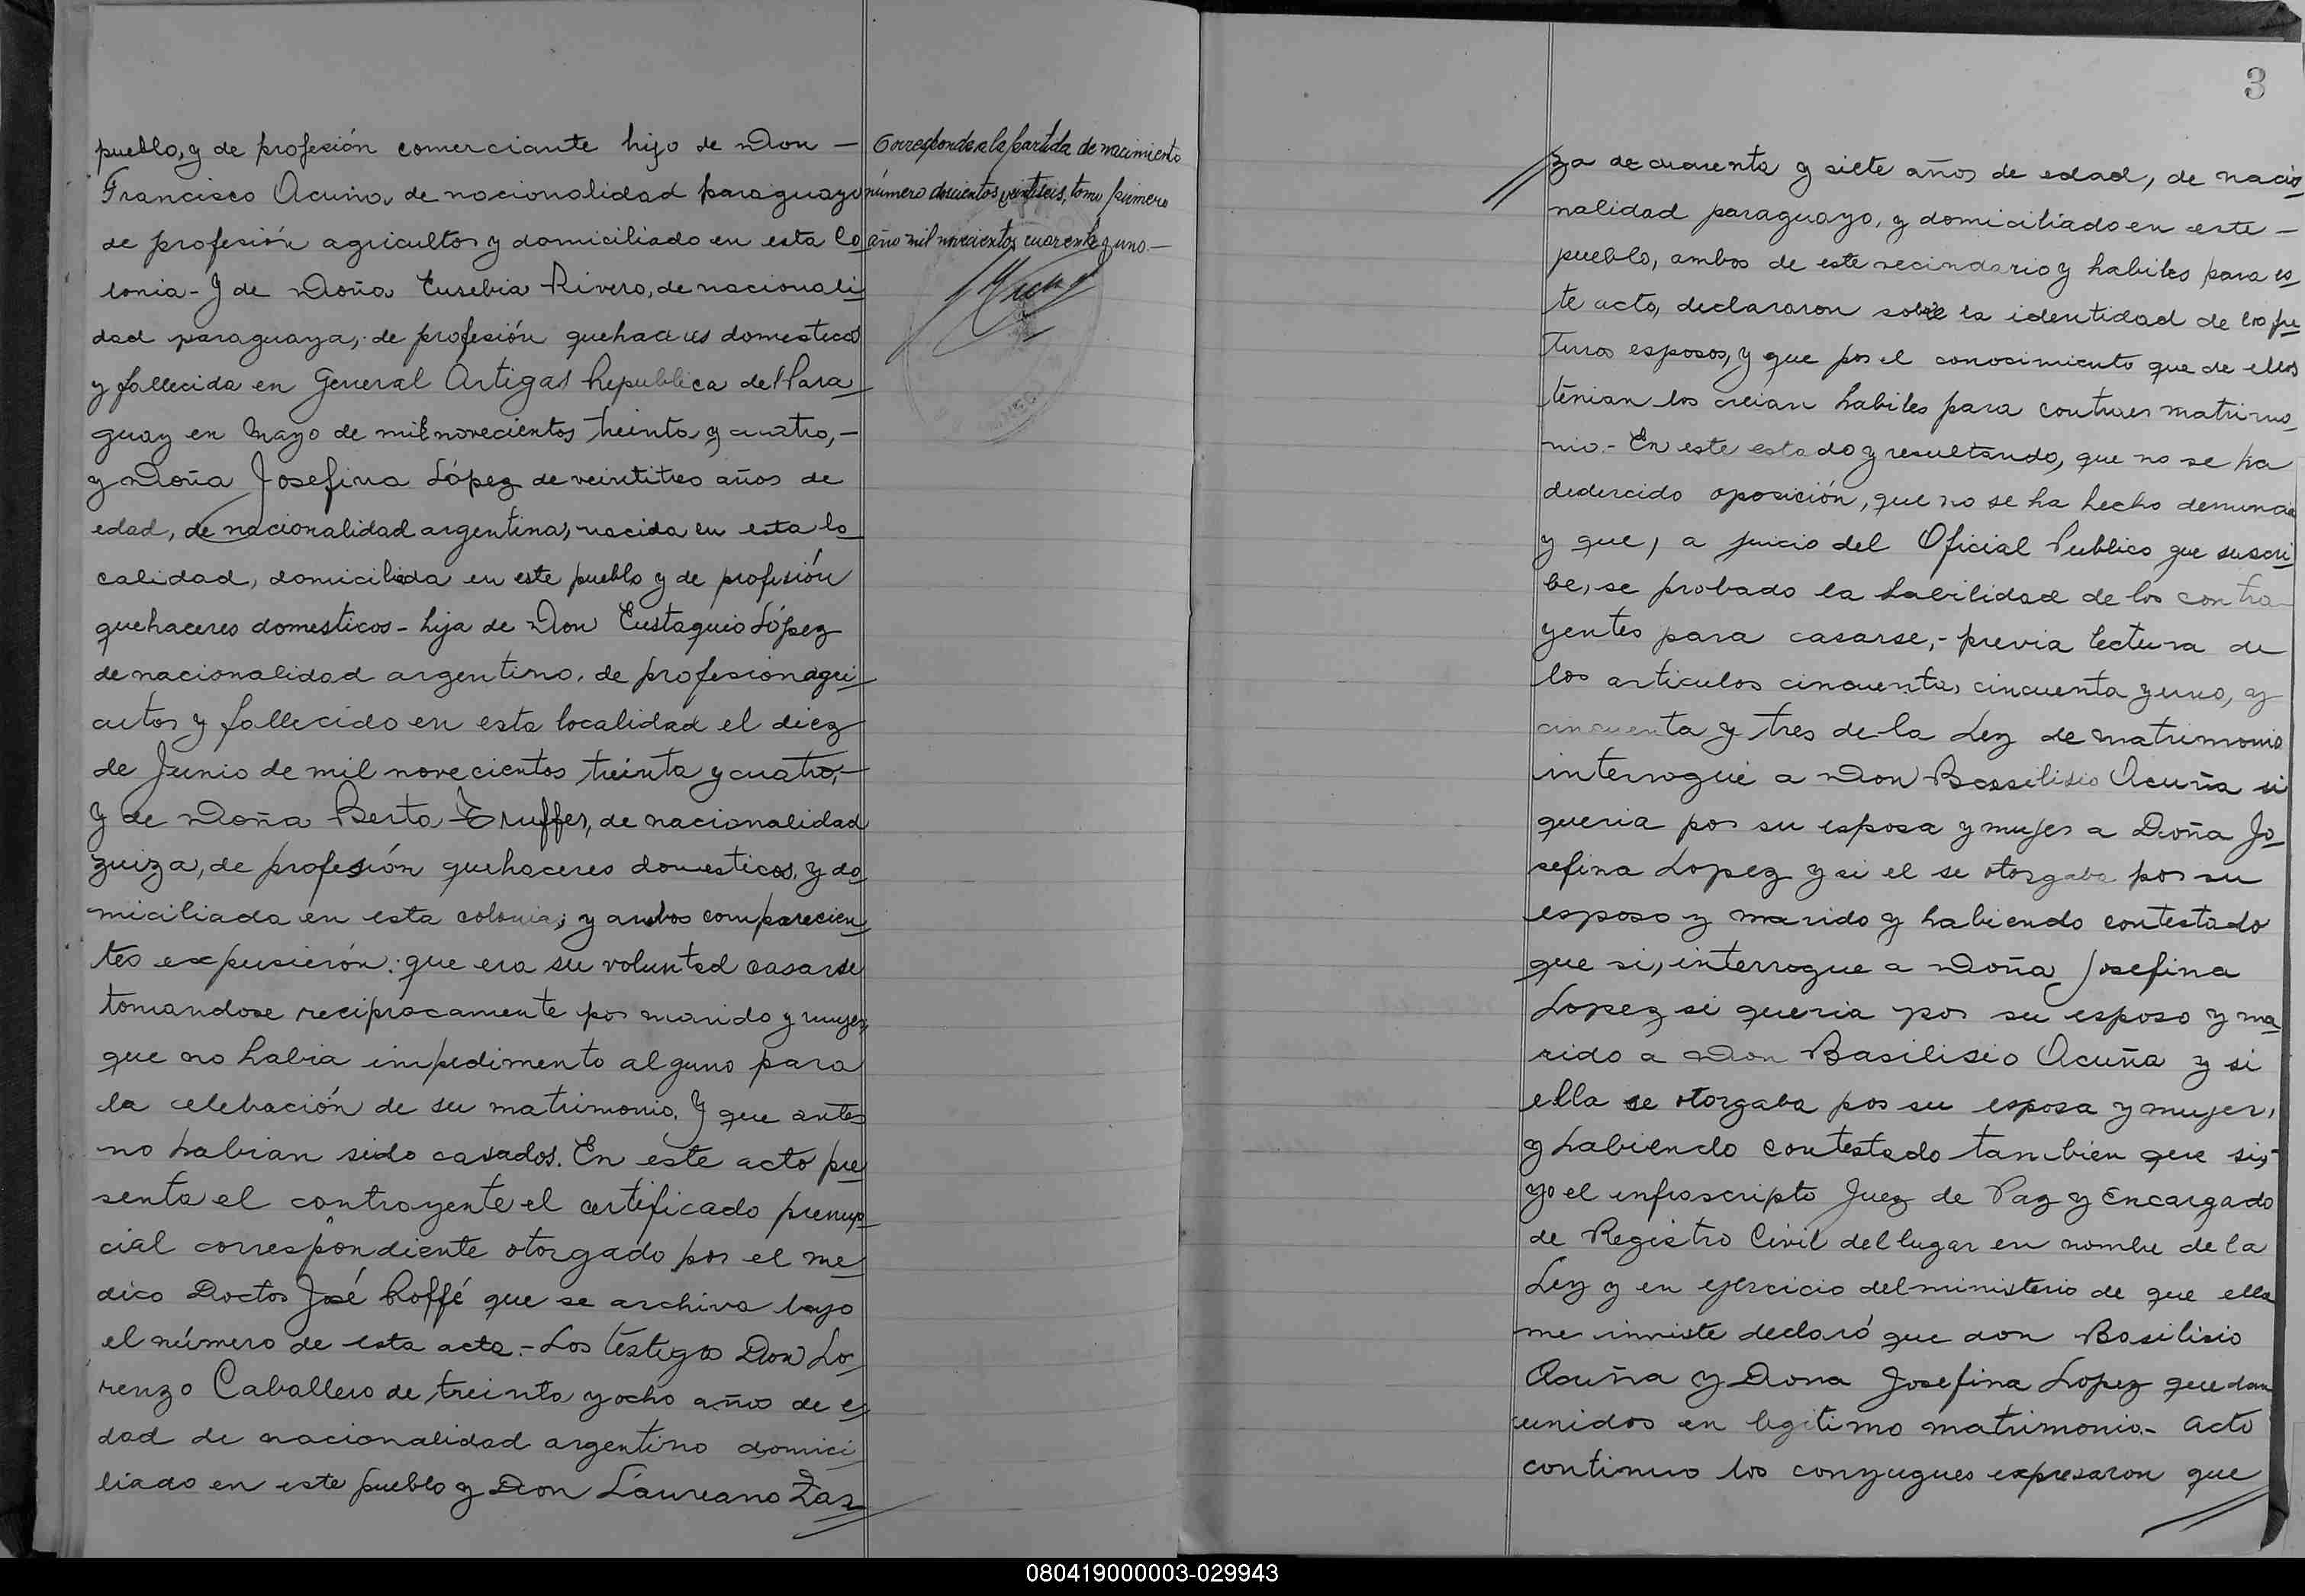 pueblo, y de profesión comerciante hijo de Don —
Francisco Acuña, de nacionalidad paraguayo
de profesión agricultor y domiciliado en esta Co
lonia - Y de Doña Eusebia Rivero, de nacionali
dad paraguaya, de profesión quehaceres domesticos
y fallecida en General Artigas Republica del Para
guay en Mayo de mil novecientos treinta y cuatro, —
y Doña Josefina López de veintitres años de
edad, de nacionalidad argentina, nacida en esta lo
calidad, domiciliada en este pueblo y de profesión
quehaceres domesticos - hija de Don Eustaquio López
de nacionalidad argentino, de profesion agri
cutor y fallecido en esta localidad el diez
de Junio de mil novecientos treinta y cuatro, —
Y de Doña Berta Truffer, de nacionalidad
zuiza, de profesión quehaceres domesticos, y do
miciliada en esta colonia; y ambos comparecien
tes expusierón: que era su voluntad casarse
tomandose reciprocamente por marido y mujer,
que no habia impedimento alguno para
la celebación de su matrimonio. Y que antes
no habian sido casados. En este acto pre
senta el contrayente el certificado prenup
cial correspondiente otorgado por el me
dico Doctor José Roffé que se archiva bajo
el número de esta acta. - Los testigos Don Lo
renzo Caballero de treinta y ocho años de e
dad de nacionalidad argentino domici
liado en este pueblo y Don Láureano Zar
Corresponde a la partida de nacimiento
número doscientos veintiseis, tomo primero
año mil novecientos cuarenta y uno. —
3
za de cuarenta y siete años de edad, de nacio
nalidad paraguayo, y domiciliado en este —
pueblo, ambos de este vecindario y habiles para es
te acto, declararon sobre la identidad de los fu
turos esposos, y que por el conocimiento que de ellos
tenian los creian habiles para contraer matrimo
nio. - En este estado y resultando, que no se ha
dedercido oposición, que no se ha hecho denuncia
y que, a juicio del Oficial Publico que suscri
be, se probado la habilidad de los contra
yentes para casarse, - previa lectura de
los articulos cincuenta, cincuenta y uno, y
cincuenta y tres de la Ley de matrimonio
interrogué a Don Bassilisio Acuña si
queria por su esposa y mujer a Doña Jo
sefina Lopez y si el se otorgaba por su
esposo y marido y habiendo contestado
que si, interrogue a Doña Josefina
Lopez si queria por su esposo y ma
rido a Don Basilisio Acuña y si
ella se otorgaba por su esposa y mujer,
y habiendo contestado tambien que si, -
yo el infrascripto Juez de Paz y Encargado
de Registro Civil del lugar en nombre de la
Ley y en ejercicio del ministerio de que ella
me inviste declaró que don Basilisio
Acuña y Dona Josefina Lopez quedan
unidos en legitimo matrimonio. - Acto
continuo los conyugues expresaron que
080419000003-029943